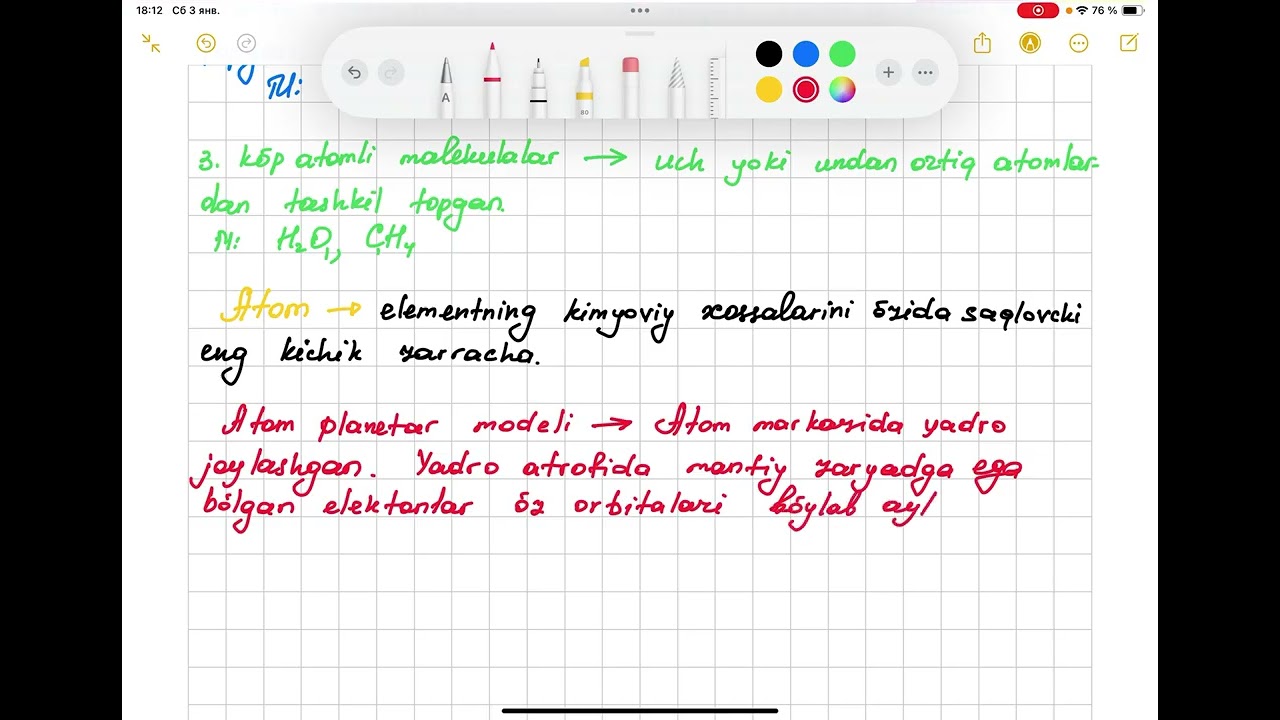 18:12 Сб 3 янв. 76 %
A 80
M:
3. kõp atomli malekulalar → uch yoki undan ortiq atomlar-
dan tashkil topgan.
M: H₂O, CH₄
Atom → elementning kimyoviy xossalarini õzida saqlovchi
eng kichik zarracha.
Atom planetar modeli → Atom markazida yadro
joylashgan. Yadro atrofida manfiy zaryadga ega
bõlgan elektonlar õz orbitalari bõylab ayl